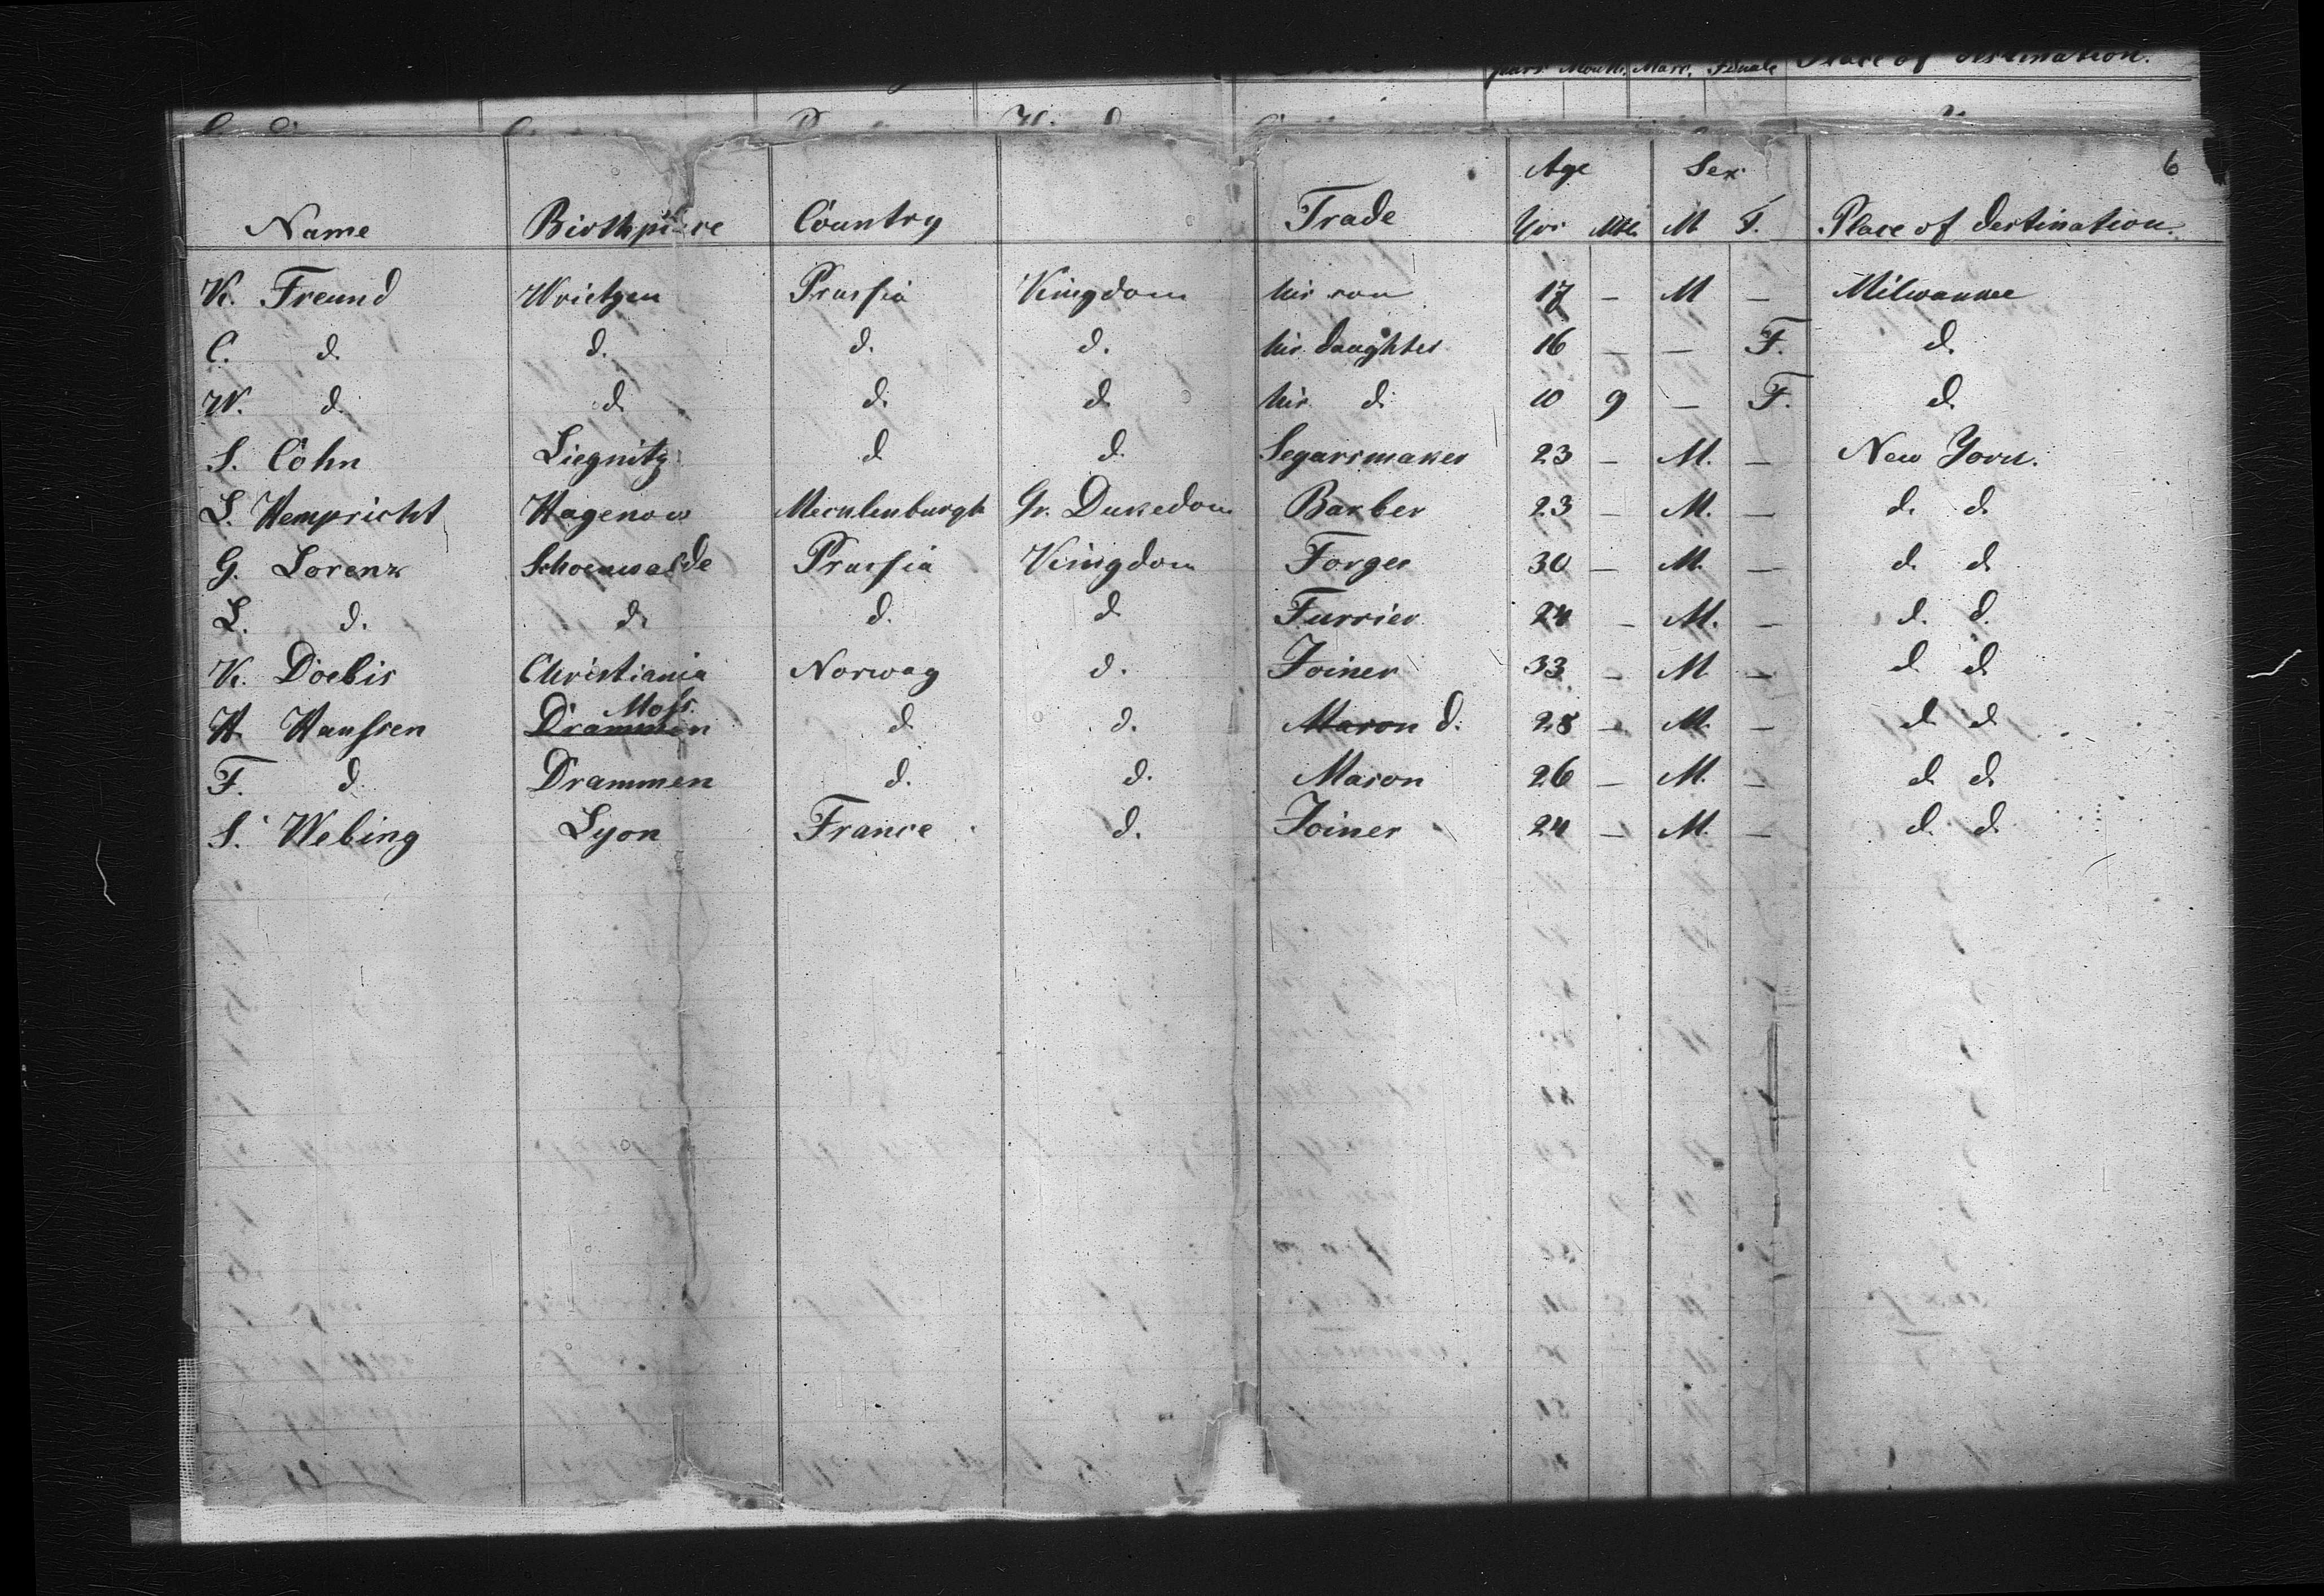 Years Months Masc. Female Place of destination.
6
Age Sex
Name Birthplace Country Trade Yrs Mth. M F. Place of destination.
K. Freund Wrietzen Prussia Kingdom his son 17 – M – Milwaukee
C. d. d. d. d. his daughter 16 – – F. d.
W. d. d. d. d his d. 10 9 – F. d.
S. Cohn Liegnitz d d. Segarsmaker 23 – M. – New York.
L. Hempricht Hagenow Mecklenburgh Gr. Dukedom Barber 23 – M. – d. d.
G. Lorenz Schoenwalde Prussia Kingdom Forger 30 – M. – d. d.
L. d. d. d. d Furrier 24 – M. – d. d.
K. Doebis Christiania Norway d. Joiner 33 – M – d d
Moss
H. Hanssen Drammen d d. Mason d. 28 – M. – d. d
F. d. Drammen d. d. Mason 26 – M. – d. d.
S. Webing Lyon France d. Joiner 24 – M. – d. d.